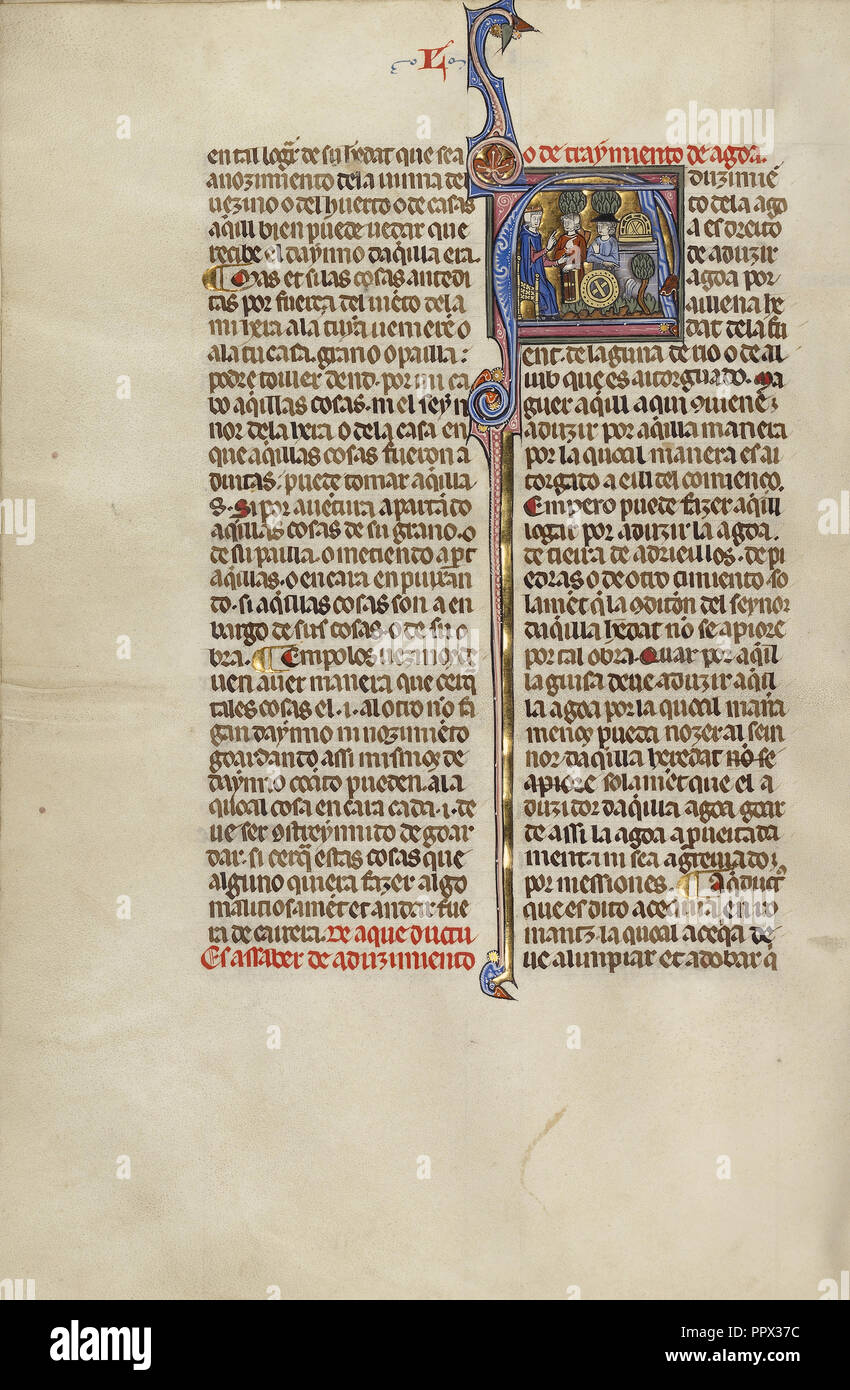 L
en tal logar de su hedat que sea
auozimiento dela uinna del
uezino o del huerto o de casas
aqill bien puede uedar que
recibe el daynno daqilla era.
Mas et si las cosas antedi
tas por fuerça del uiento dela
mi hera ala tuya uenieren o
ala tu casa. grano o pailla:
podre toiller dend. por mi ca
bo aqillas cosas. ni el seyn
nor dela hera o dela casa en
que aqillas cosas fueron a
duitas. puede tomar aqilla
s. Si por auentura apartado
aqillas cosas de su grano. o
de su pailla. o metiendo apart
aqillas. o encara en puixan
do. si aqillas cosas son a en
bargo de sus cosas. o de su o
bra. Empo los uezinos de
uen auer manera que cerq
tales cosas el .i. al otro no fa
gan daynno ni nozimiento
goardando assi mismos de
daynno quanto pueden. ala
qual cosa encara cada .i. de
ue ser costreynnito de goar
dar. si cerq estas cosas que
alguno quiera fazer algo
maliciosament et andar fue
ra de carrera. De aque ductu
Es assaber de aduzimiento
o de traymiento de agoa.
Aduzimie
to dela ago
a es dreito
de aduzir
agoa por
aillena he
dat dela fu
ent. de laguna de rio o de al
iub que es atorguado. Ma
guer aqill a qui conuiene
aduzir por aqilla manera
por la quoal manera es ai
torgato a eill del comienço.
Empero puede fazer aqill
logar por aduzir la agoa.
de tierra de adrieillos. de pi
edras o de otro cimiento so
lament q la condition del seynor
daquilla hedat no se apiore
por tal obra. Quar por aqill
la guisa deue aduzir aqill
la agoa por la quoal mana
menos pueda nozer al sein
nor daquilla heredat no se
apiore solament que el a
duzidor daquilla agoa goar
de assi la agoa aprueitada
ment. ni sea agreuiado
por messiones. Aqduct
que es dito acequia en ro
manz. la quoal aceqia de
ue alimpiar et adobar q
alamy
PPX37C
www.alamy.com